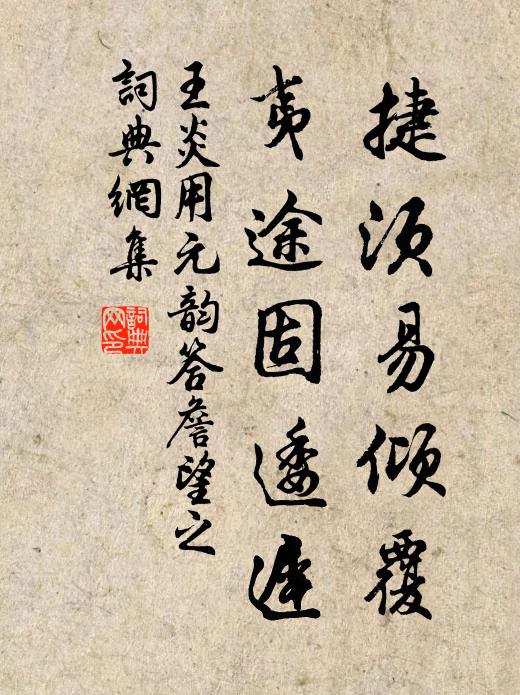 捷须易倾覆
夷途固逶迟
王炎用元韵答詹望之
詞典網集
詞典网印